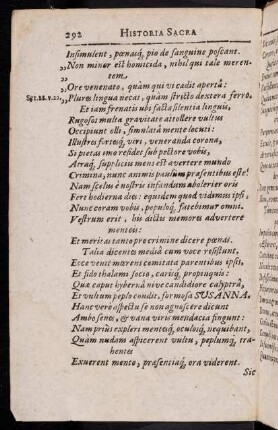 292 HISTORIA SACRA
Insimulent, pœnaq́, pio de sanguine poscant.
„Non minor est homicida, nihil qui tale merentem,
„Ore venenato, quàm qui vi cadit apertâ:
„Plures lingua necat, quàm stricto dextera ferro.
Et iam frenati ubi facta silentia linguis,
Rugosos multa gravitate attollere vultus
Occipiunt olli, simulatâ mente locuti:
Illustres fœteiq́, viri, veneranda corona,
Si pietas imo residet sub pectore vobis,
Atraq́, supplicii mens est avertere mundo
Crimina, nunc animis paulùm præsentibus este!
Nam scelus è nostris infandum abolerier oris
Fert hodierna dies: equidem quod vidimus ipsi,
Nunc coram vobis, populoq́, fatebimur omni.
Vestrum erit, his dictis memores advertere
mentes:
Et meritas tanto pro crimine dicere pœnas.
Talia dicentes mediâ cum voce resistunt,
Ecce venit mœrens comitata parentibus ipsis,
Et fido thalami socio, cariiq́, propinquis:
Qua caput hybernâ nive candidiore calyptrâ,
Et vultum peplo condit, formosa SUSANNA,
Hanc verò aspectu se non agnoscere dicunt
Ambo senes, & vana viris mendacia fingunt:
Nam priùs expleri menteq́, oculisq́, nequibant,
Quàm nudam aspicerent vultu, peplumq́, trahentes
Exuerent mento, præsentiaq́, ora viderent.
Sic